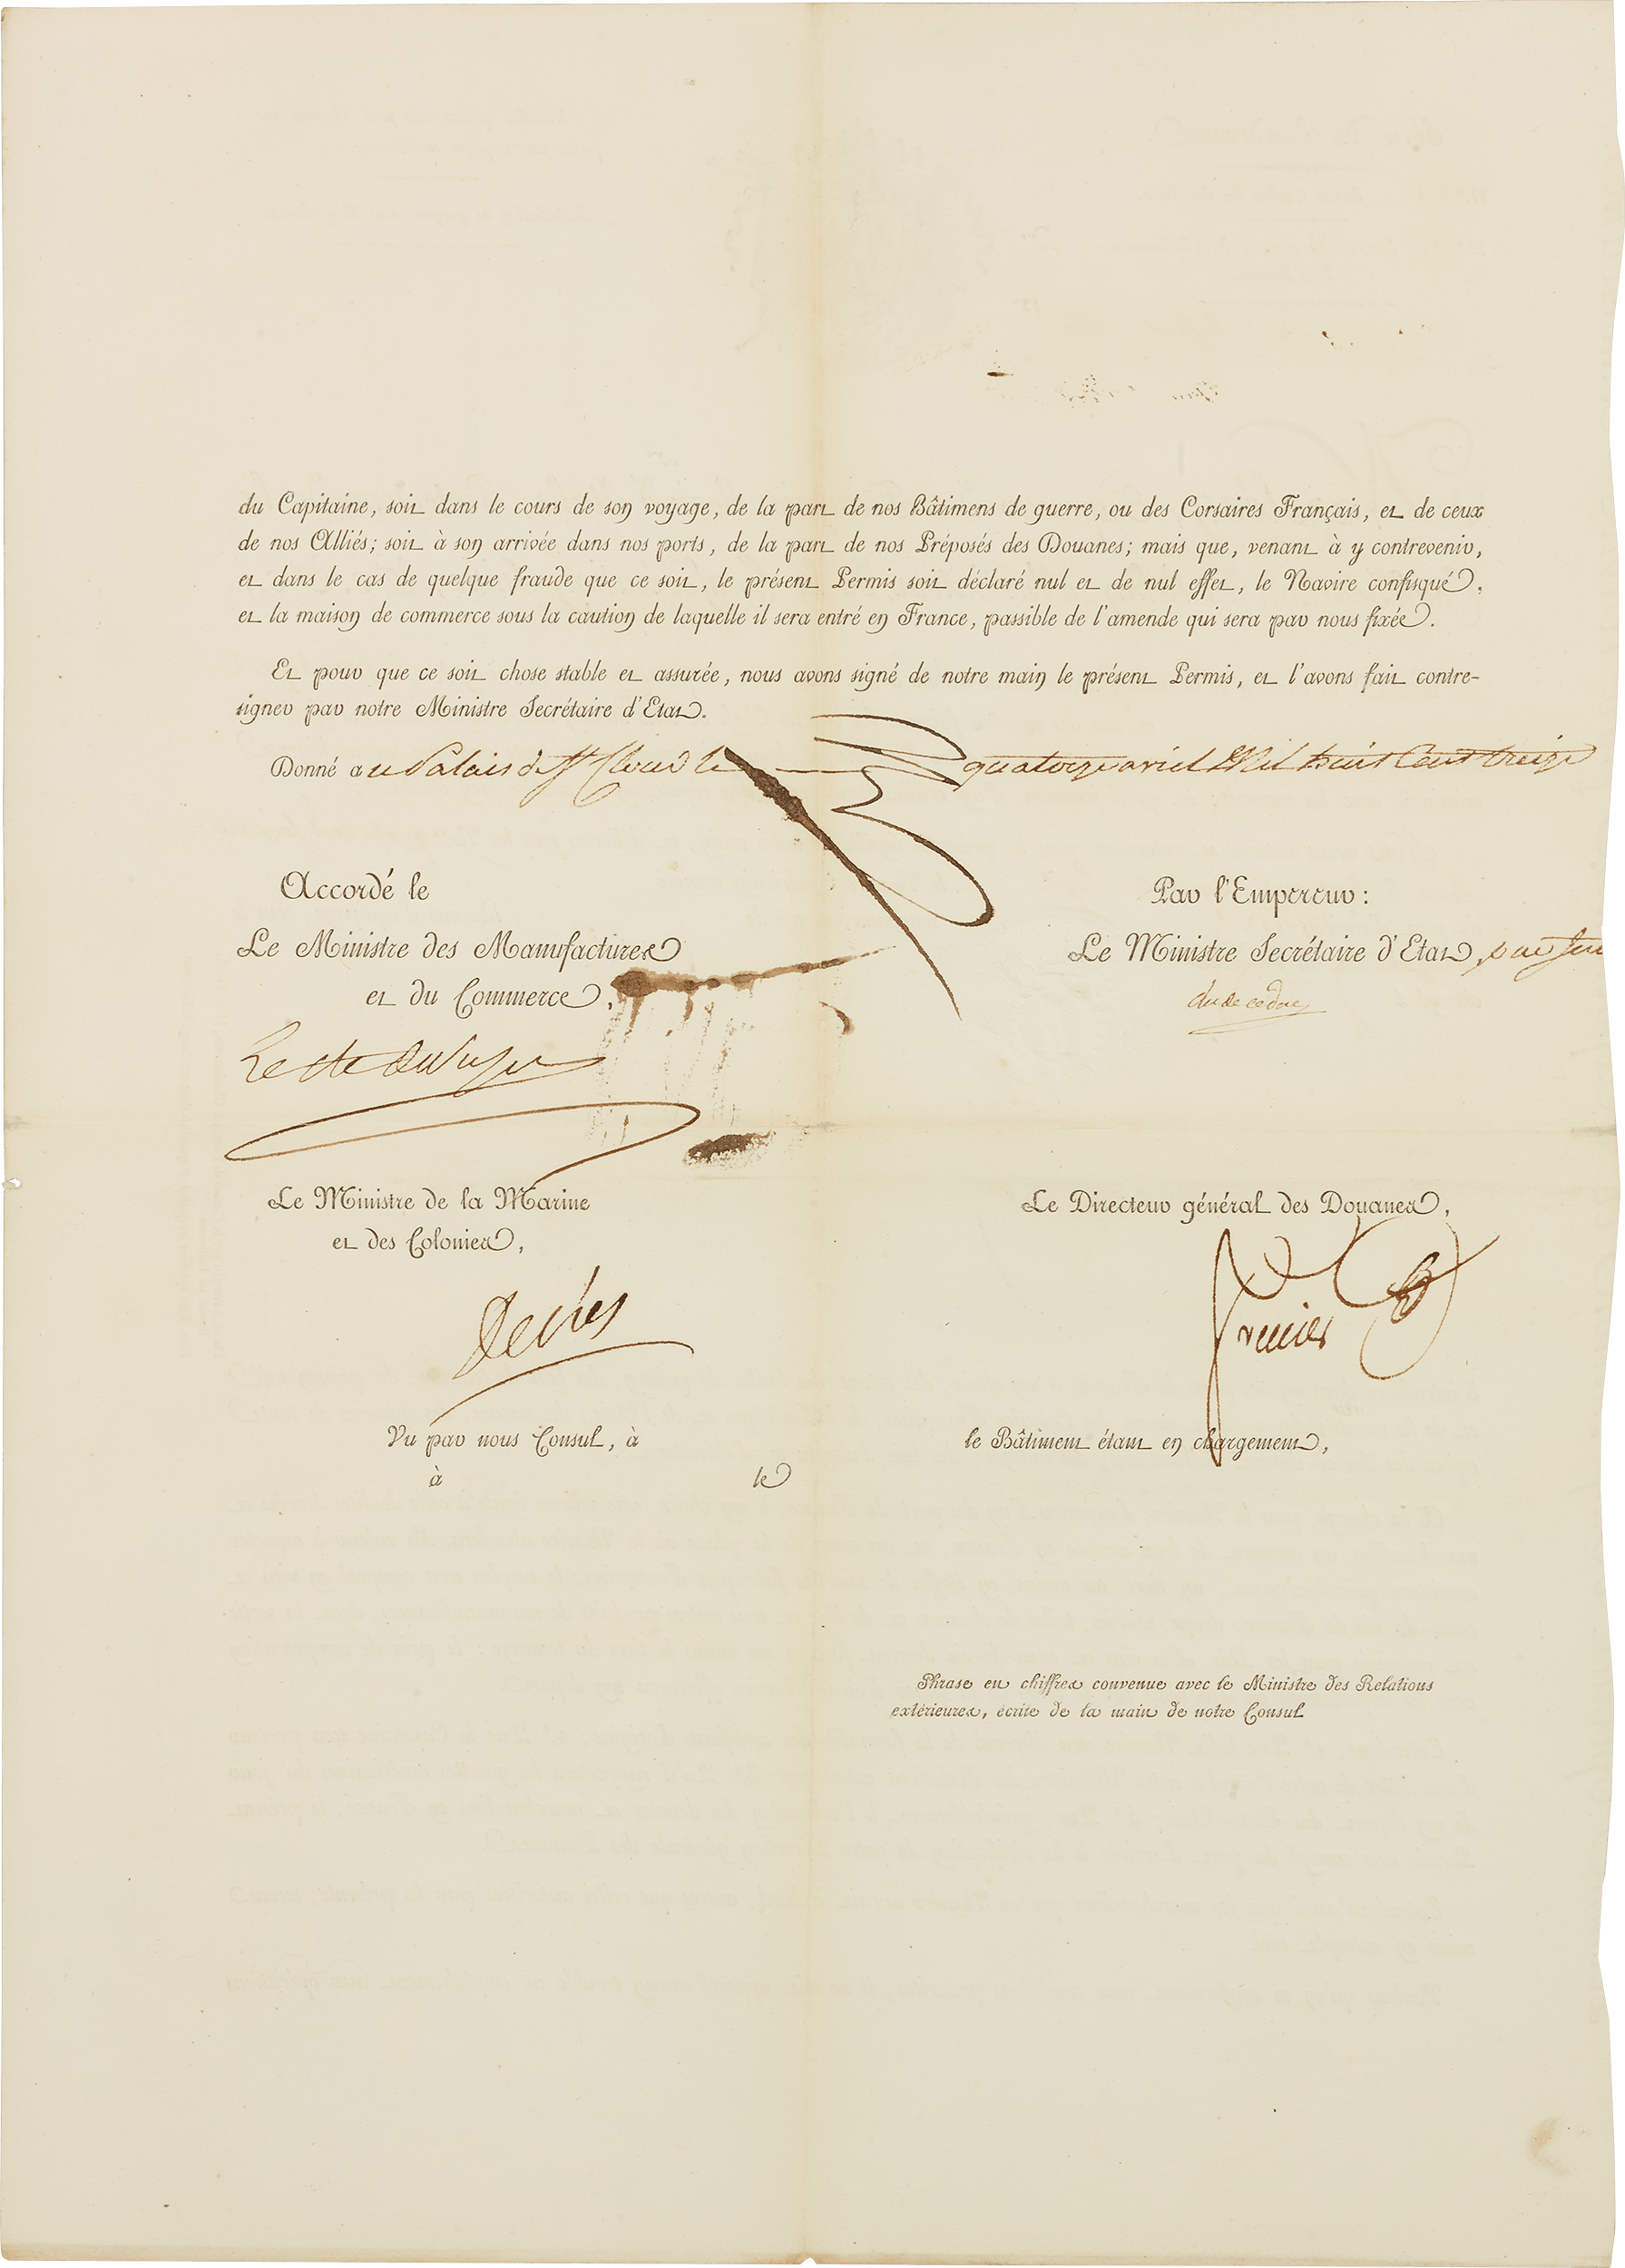 du Capitaine, soit dans le cours de son voyage, de la part de nos Bâtimens de guerre, ou des Corsaires Français, et de ceux
de nos Alliés; soit à son arrivée dans nos ports, de la part de nos Préposés des Douanes; mais que, venant à y contrevenir,
et dans le cas de quelque fraude que ce soit, le présent Permis soit déclaré nul et de nul effet, le Navire confisqué,
et la maison de commerce sous la caution de laquelle il sera entré en France, passible de l'amende qui sera par nous fixée.
Et pour que ce soit chose stable et assurée, nous avons signé de notre main le présent Permis, et l'avons fait contre-
signer par notre Ministre Secrétaire d'Etat.
Donné au Palais de St Cloud le quatorze avril Mil huit Cent treize
Accordé le
Par l'Empereur:
Le Ministre des Manufactures
et du Commerce,
Le Ministre Secrétaire d'Etat, par
duc de cadore
Le Ministre de la Marine
et des Colonies,
Le Directeur général des Douanes,
Decrès
Vu par nous Consul, à
le Bâtiment étant en chargement,
à le
Phrase en chiffres convenue avec le Ministre des Relations
extérieures, écrite de la main de notre Consul